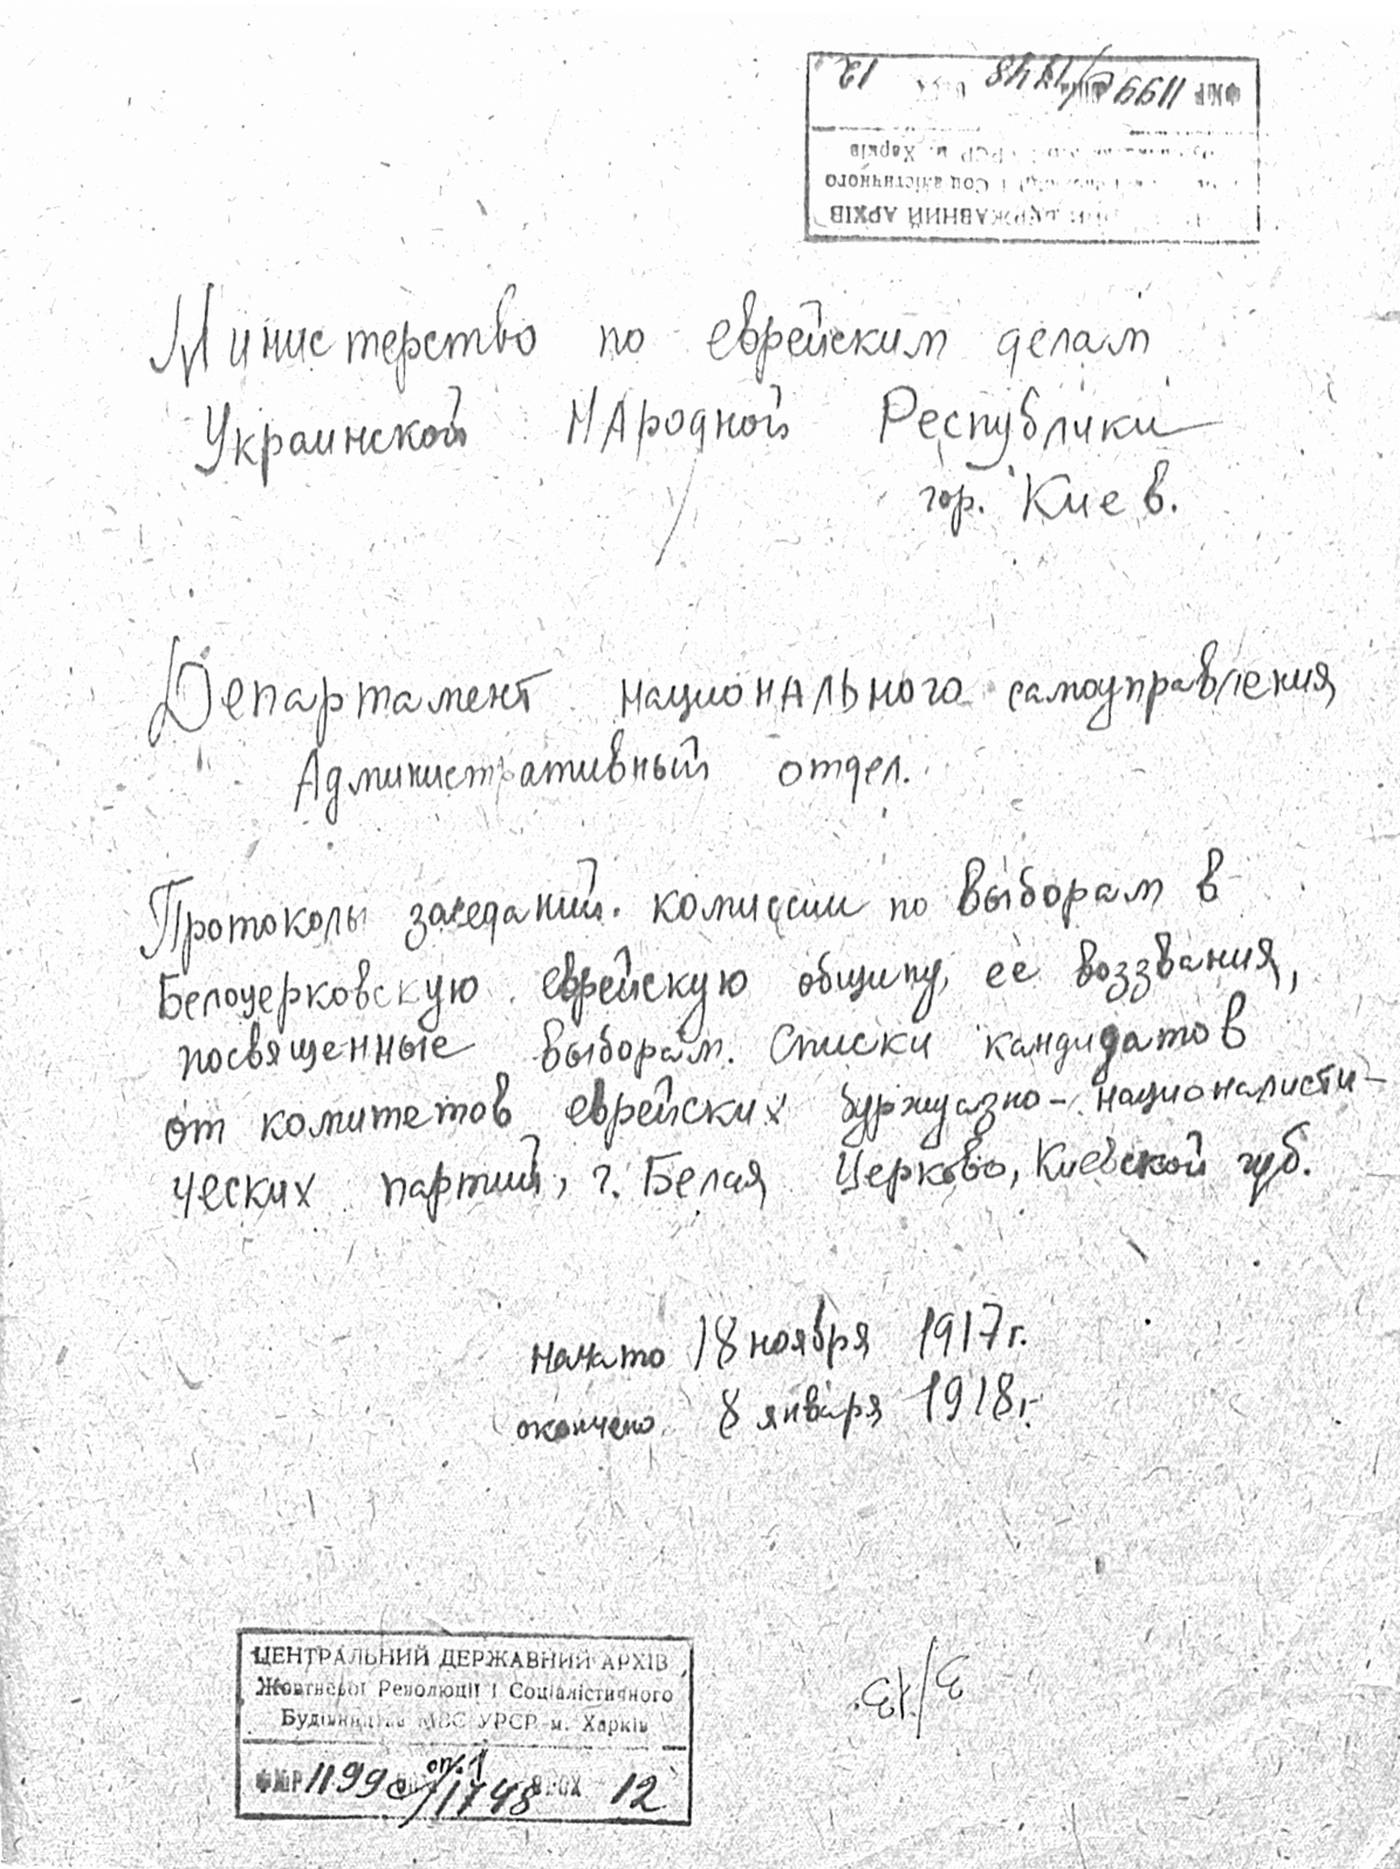 ФМР 1199с/1748 12
РСР м. Харків
і Соціалістичного
ДЕРЖАВНИЙ АРХІВ
Министерство по еврейским делам
Украинской Народной Республики
гор. Киев.
Департамент национального самоуправления
Административный отдел.
Протоколы заседаний комиссии по выборам в
Белоцерковскую еврейскую общину, её воззвания,
посвященные выборам. Списки кандидатов
от комитетов еврейских буржуазно-националисти-
ческих партий, г. Белая Церковь, Киевской губ.
начато 18 ноября 1917 г.
окончено 8 января 1918 г.
ЦЕНТРАЛЬНИЙ ДЕРЖАВНИЙ АРХІВ
Жовтневої Революції і Соціалістичного
Будівництва МВС УРСР м. Харків
оп. 1
ФМР 1199с/1748 12